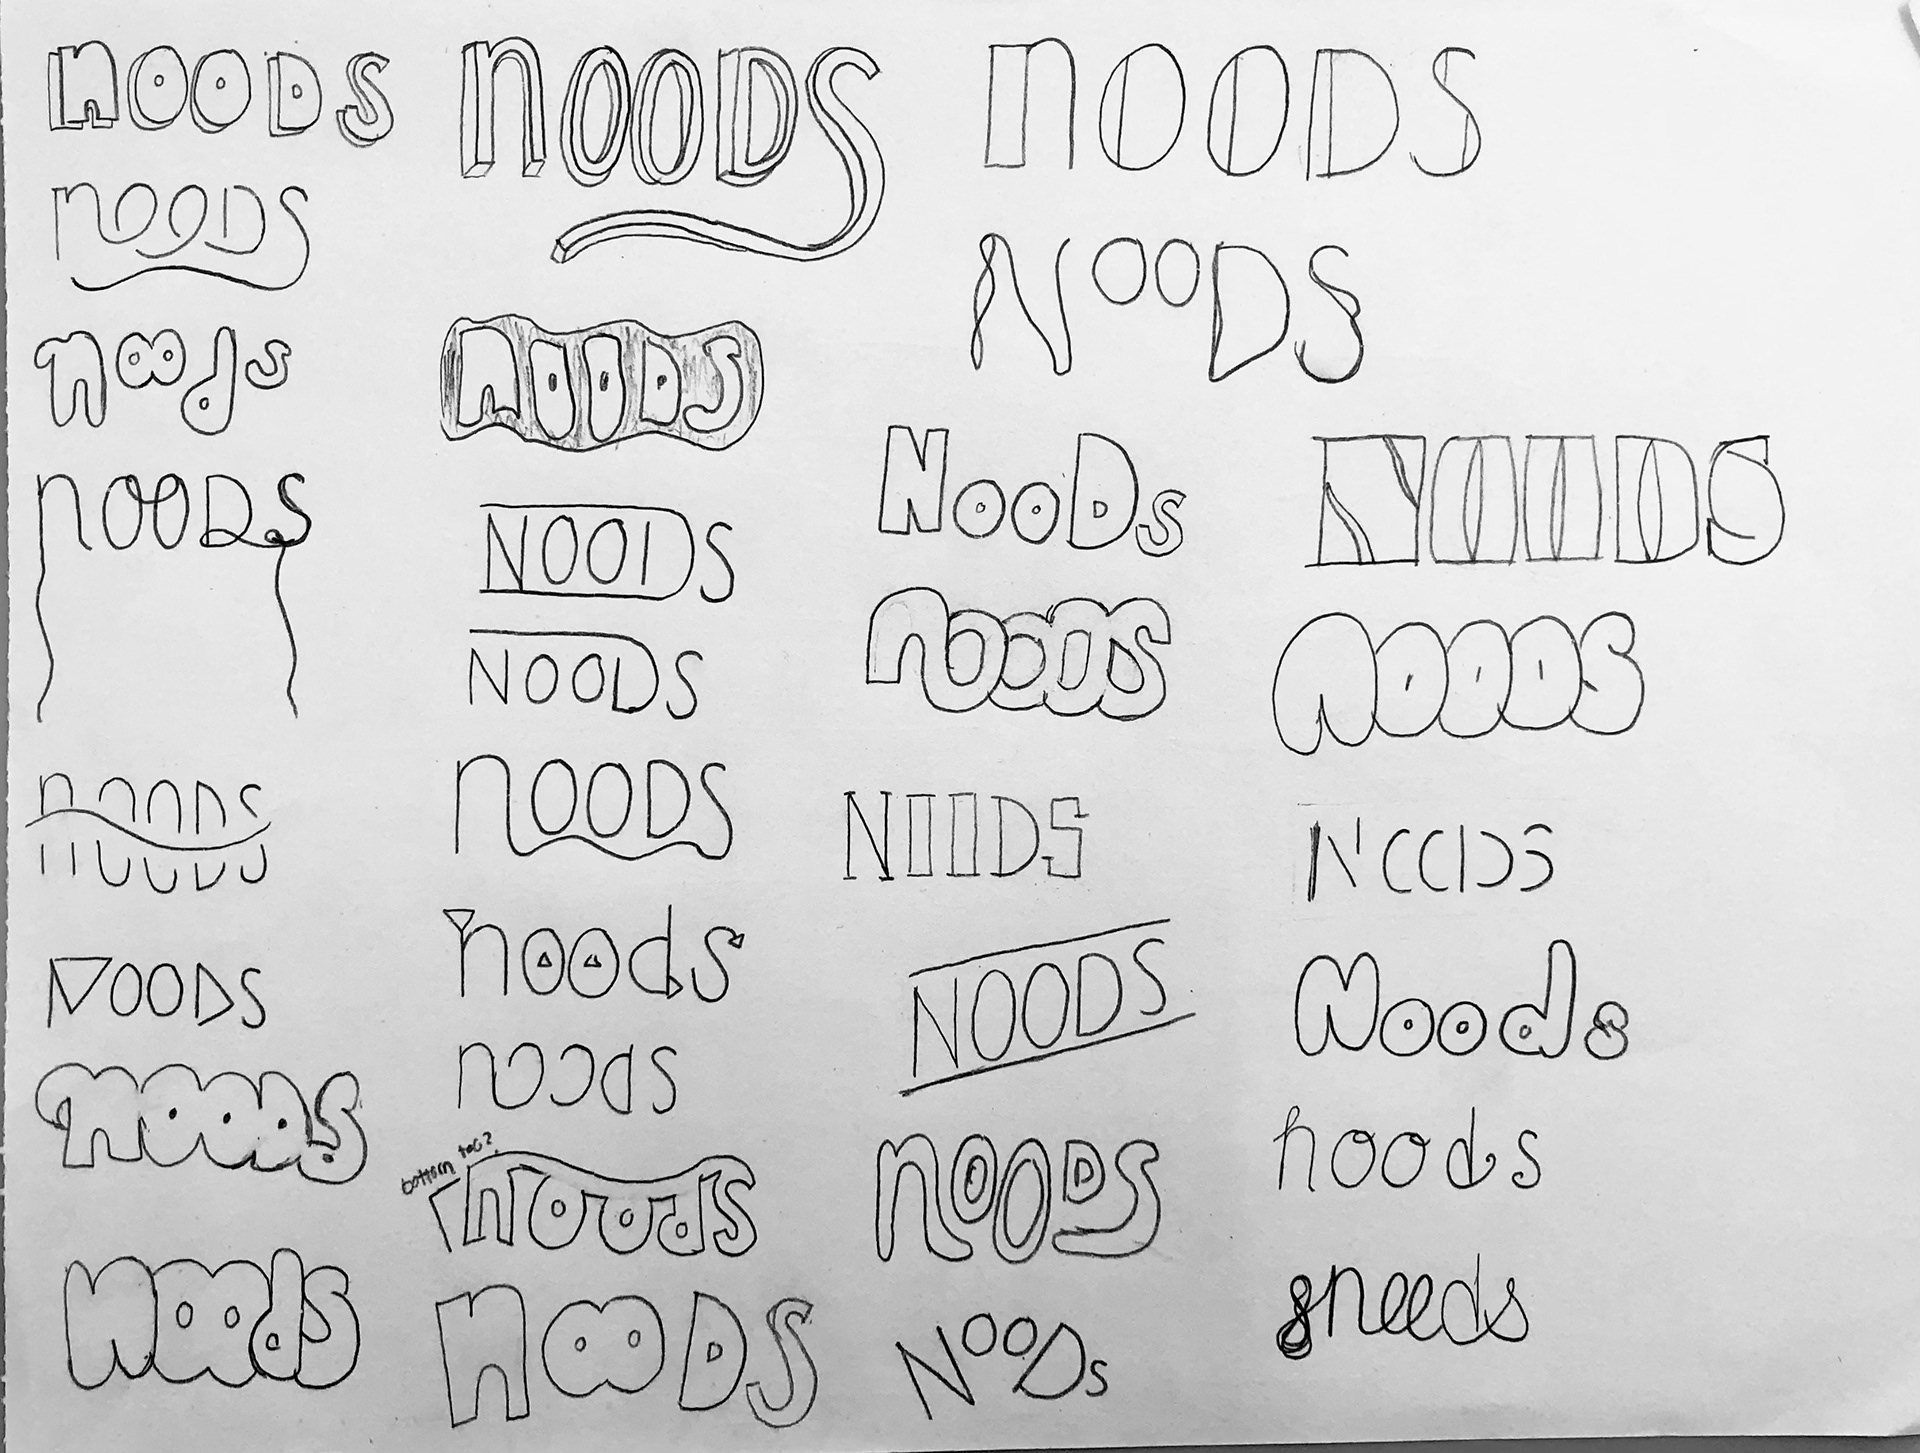 nOODS
nOODS
noods
nOODS
nOODS
NOODS
nOODS
noods
nOODS
nOODS
NOODS
NOODS
nOODS
noods
noods
bottom too?
noods
nOODS
nOODS
NOODS
NooDs
nooDS
NOODS
NOODS
nOODS
NOODs
NOODS
nOODS
NOODS
Noods
noods